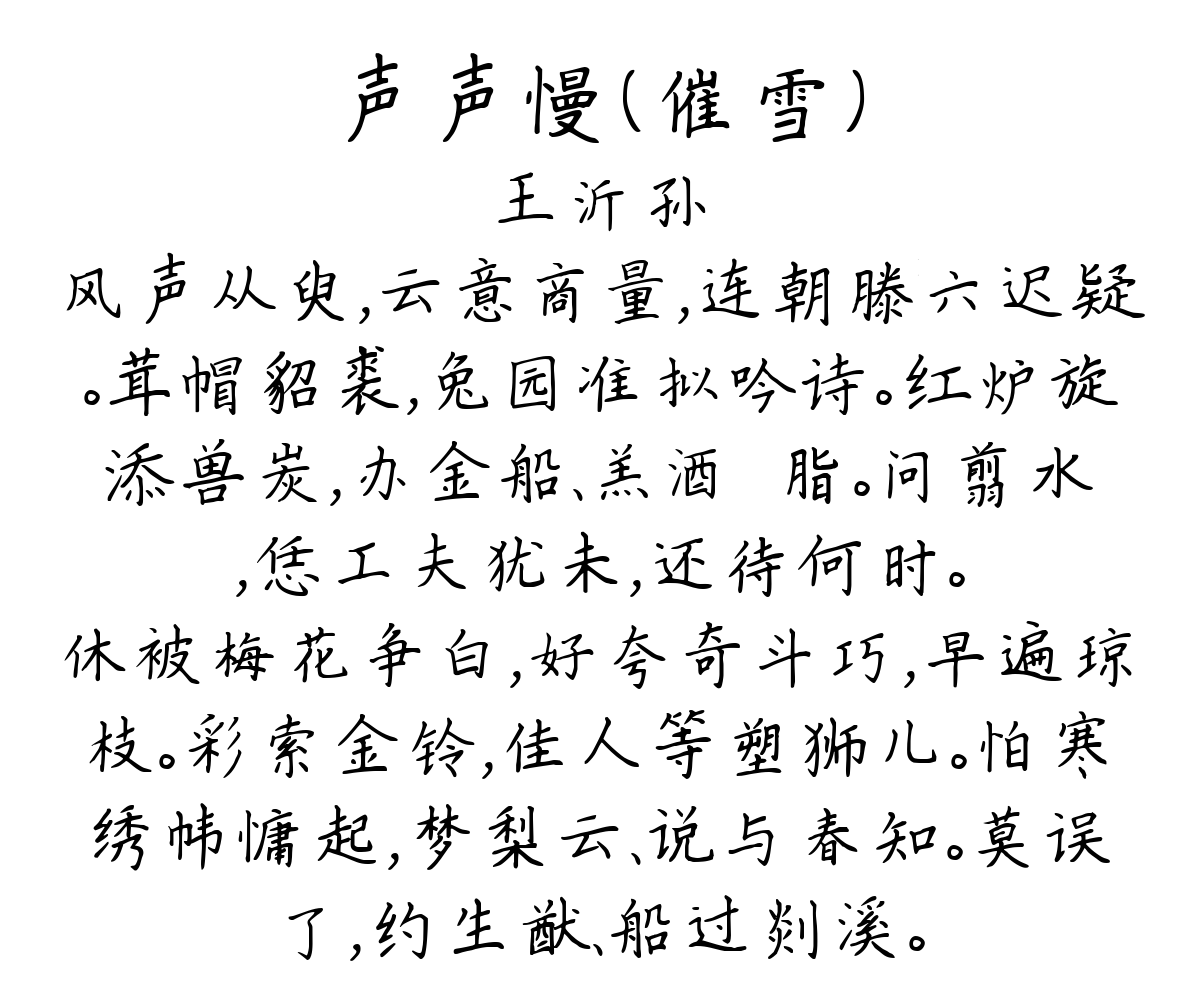 声声慢(催雪)
王沂孙
风声从臾,云意商量,连朝滕六迟疑
。茸帽貂裘,兔园准拟吟诗。红炉旋
添兽炭,办金船、羔酒 脂。问翦水
,恁工夫犹未,还待何时。
休被梅花争白,好夸奇斗巧,早遍琼
枝。彩索金铃,佳人等塑狮儿。怕寒
绣帏慵起,梦梨云、说与春知。莫误
了,约生猷、船过剡溪。